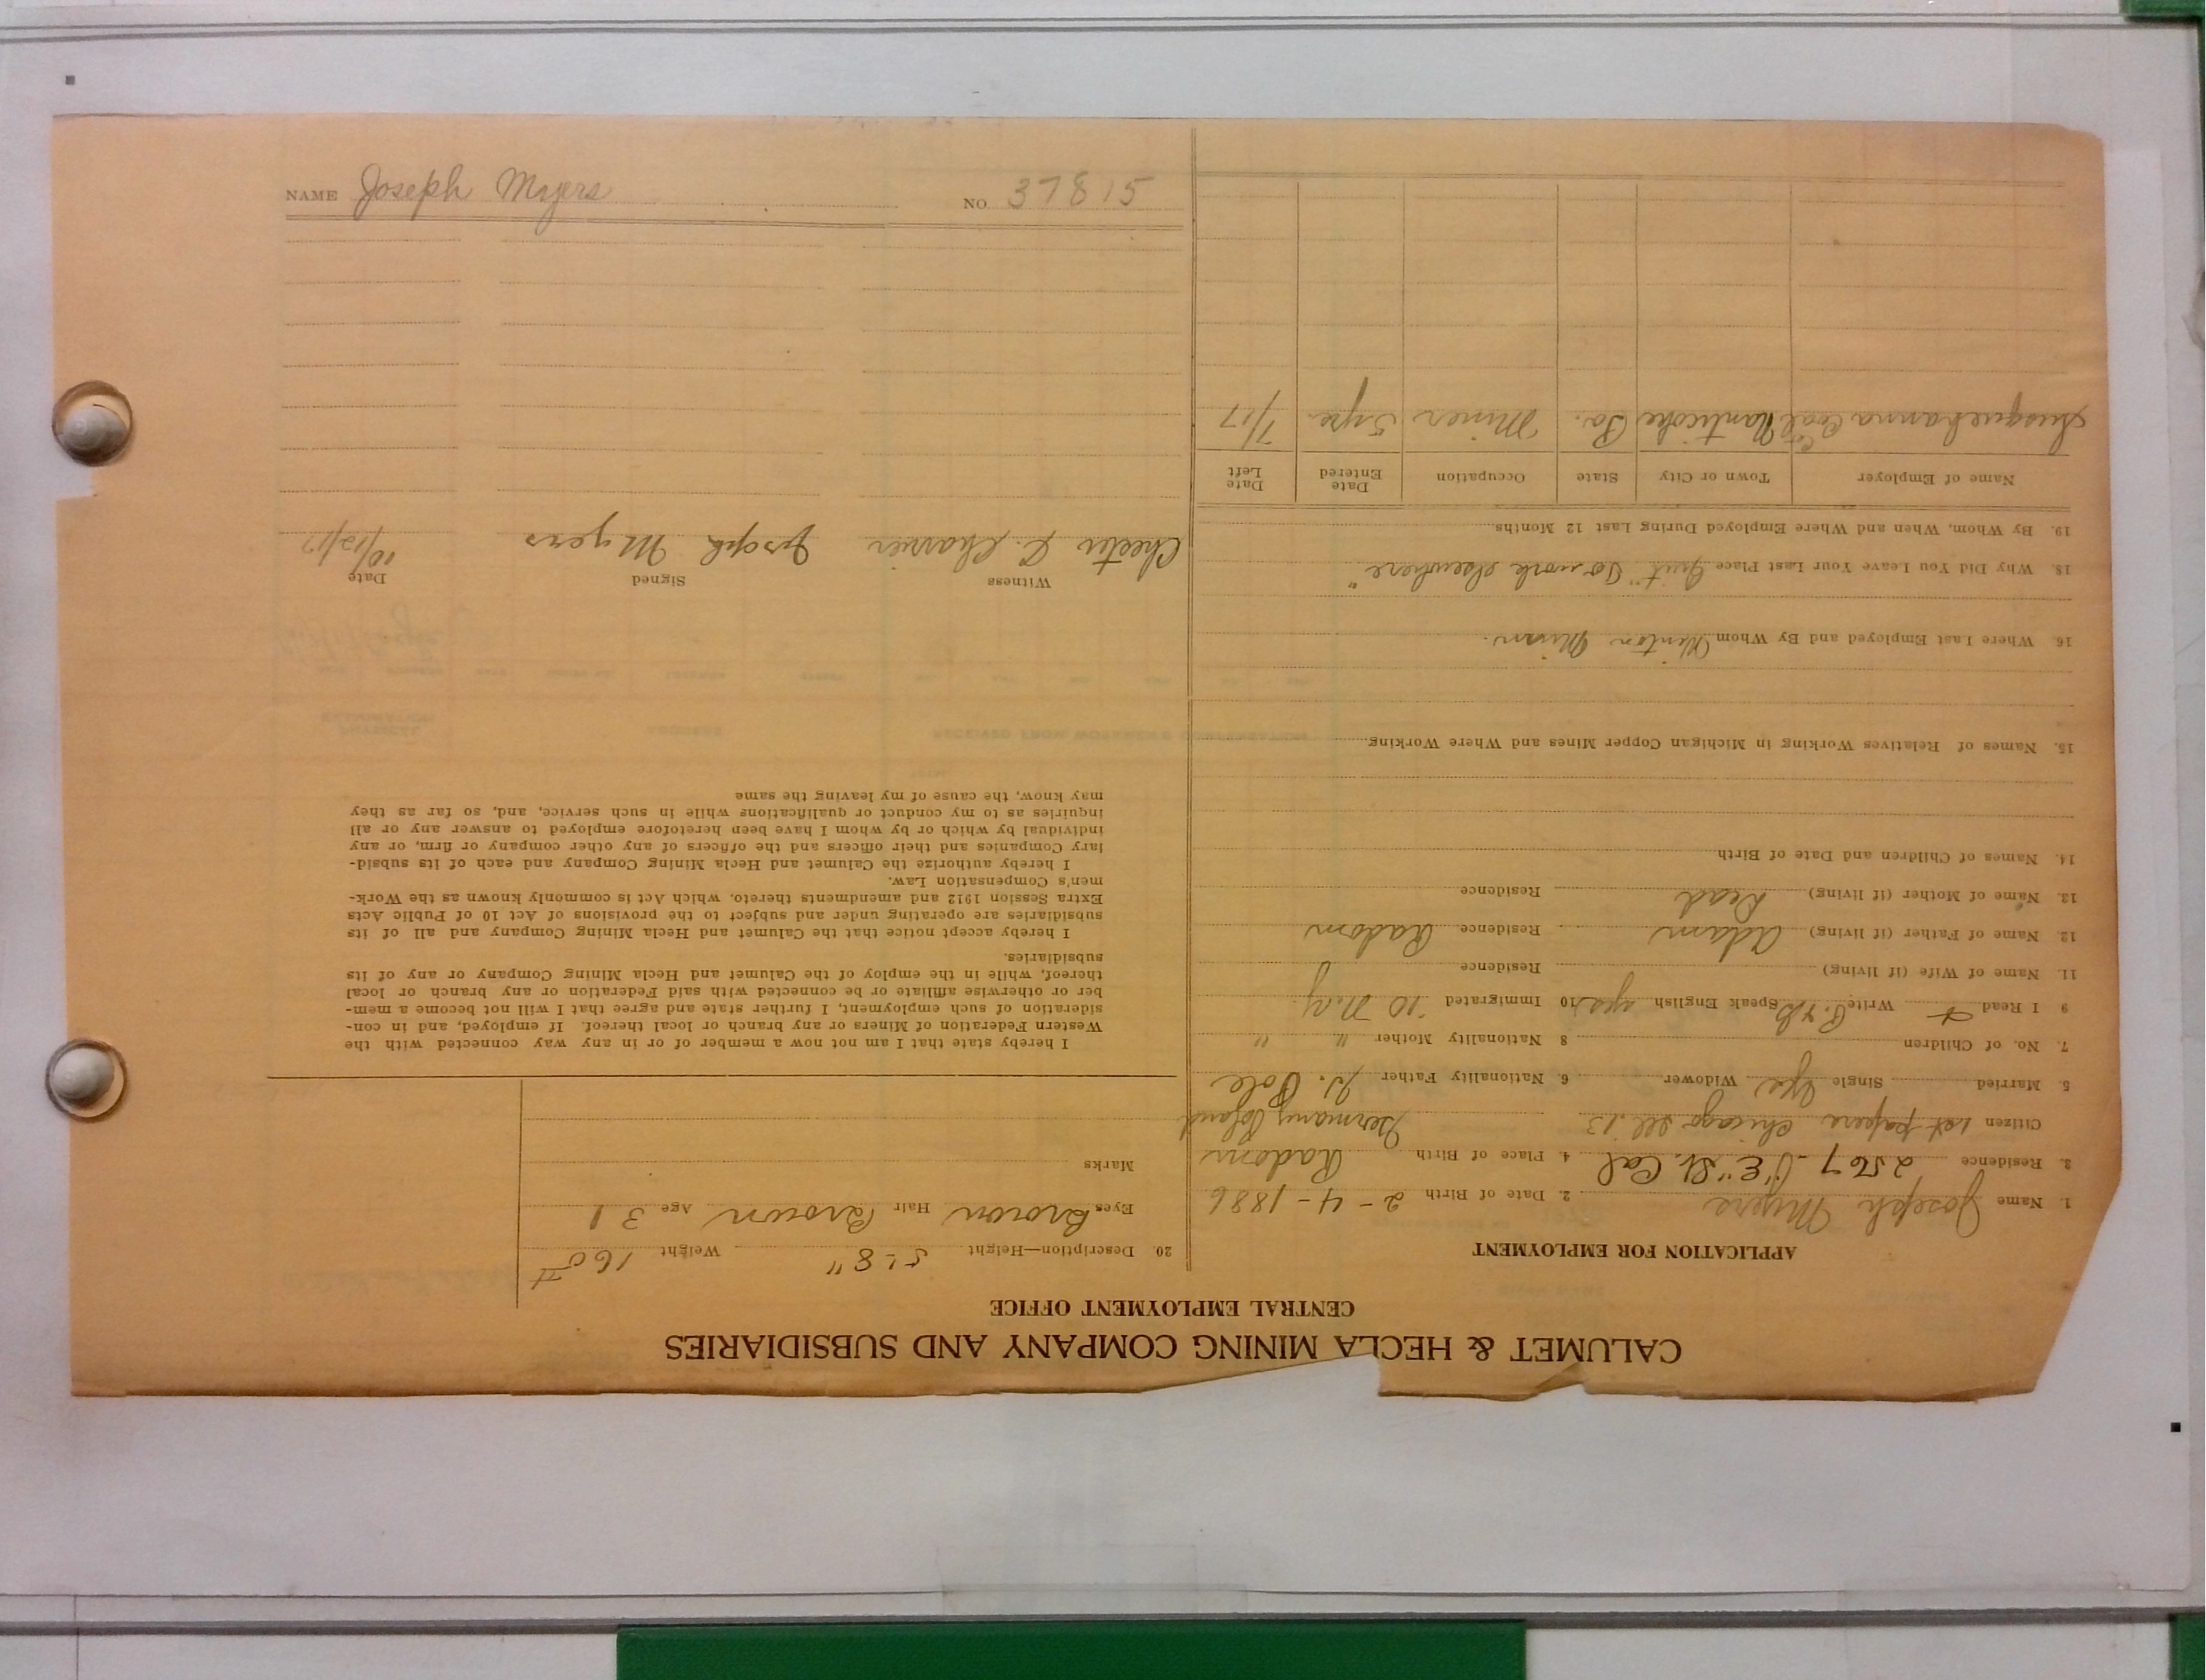 CALUMET & HECLA MINING COMPANY AND SUBSIDIARIES
CENTRAL EMPLOYMENT OFFICE
APPLICATION FOR EMPLOYMENT
1. Name Joseph Myers 2. Date of Birth 2-4-1886
3. Residence 2567-"E" St. Cal 4. Place of Birth Radom
Citizen 1st papers Chicago Ill. 13 Germany Poland
5. Married Single Yes Widower 6. Nationality Father Pole
7. No. of Children 8 Nationality Mother " "
9 I Read Write Speak English yes 10 Immigrated '10 N.Y.
11. Name of Wife (if living) Residence
12. Name of Father (if living) Adam Residence Radom
13. Name of Mother (if living) Dead Residence
14. Names of Children and Date of Birth
15. Names of Relatives Working in Michigan Copper Mines and Where Working
16. Where Last Employed and By Whom Winton Minn.
18. Why Did You Leave Your Last Place Quit "To work elsewhere"
19. By Whom, When and Where Employed During Last 12 Months
Name of Employer Town or City State Occupation Date Entered Date Left
Susquehanna Coal Co Nanticoke Pa. Miner 5 yrs 7/17
20. Description—Height 5-8" Weight 160#
Eyes Brown Hair Brown Age 31
Marks
I hereby state that I am not now a member of or in any way connected with the
Western Federation of Miners or any branch or local thereof. If employed, and in con-
sideration of such employment, I further state and agree that I will not become a mem-
ber or otherwise affiliate or be connected with said Federation or any branch or local
thereof, while in the employ of the Calumet and Hecla Mining Company or any of its
subsidiaries.
I hereby accept notice that the Calumet and Hecla Mining Company and all of its
subsidiaries are operating under and subject to the provisions of Act 10 of Public Acts
Extra Session 1912 and amendments thereto, which Act is commonly known as the Work-
men's Compensation Law.
I hereby authorize the Calumet and Hecla Mining Company and each of its subsid-
iary Companies and their officers and the officers of any other company or firm, or any
individual by which or by whom I have been heretofore employed to answer any or all
inquiries as to my conduct or qualifications while in such service, and, so far as they
may know, the cause of my leaving the same
Witness Signed Date
Chester Joseph Myers 10/12/17
NAME Joseph Myers NO. 37815